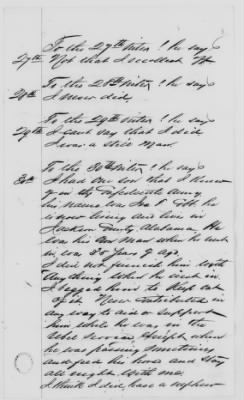 To the 27th Inter! he says
27th Not that I recollect of
To the 28th Inter! he says
28th I never did.
To the 29th Inter! he says
29th I cant say that I did
I was a still man.
To the 30th Inter! he says
30th I had one son that I know
of in the Confedicate Army
his name was
is now living and live in
Jackson County, Alabama. He
was his own man when he went
in, was 25 years of age.
I did not furnish him with
any thing when he went in.
I begged him to keep out
of it Never Contributed in
any way to aid or support
him while he was in the
rebel service. Except when
he was passing sometimes
and fed his horse and stay
all night with me.
I think I did have a nephew